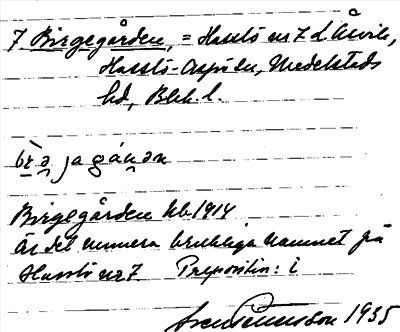 7 Birgegården, = Hasslö nr 7 L Åvik,
Hasslö-Aspö sn, Medelstads
hd, Blek. l.
Birgegården hb. 1914
Är det numera brukliga namnet på
Hasslö nr 7 Preposition: i
1935